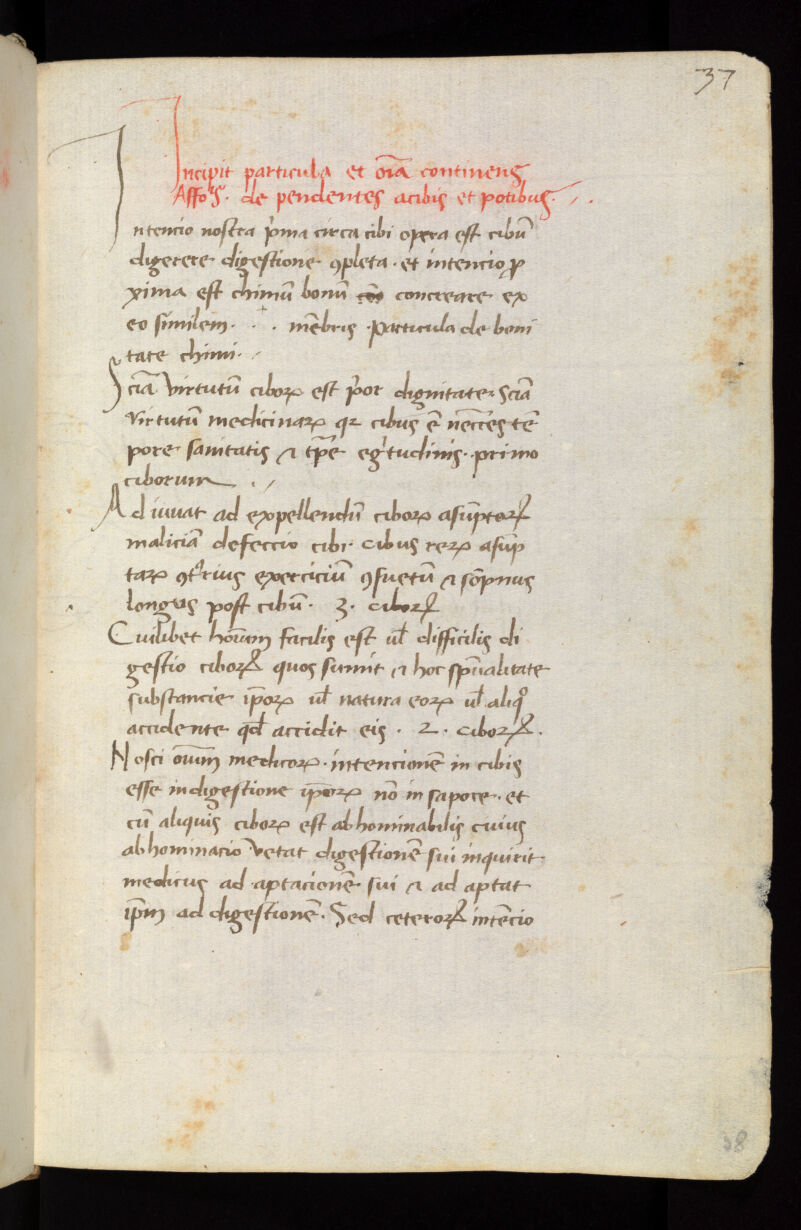 37
Incipit particula et oīa continens
Affoꝝs. de pendentes a cibis et potibus.
Intencio nostra p̄ma circa cibi opera est cibū
digerere digestione ꝯpleta. et intencio ꝓ
xima est chimū bonū concreare ex
eo similem. . . mēbris. particula de boni
tate chimi.
Sciā virtutū ciboꝝ est p̄or dignitate sciā
virtutū medicinaꝝ qꝛ cibus ē neccēs tē
pore sanitatis ⁊ tp̄e egritudinis. primo
ciborum
Ad iuvat ad expellendū ciboꝝ asūptoꝝ
maliciā defeccio cibi cibus rerꝝ asūp
taꝝ ꝯtrius exerciciū ꝯsuetū ⁊ sōpnus
longus post cibū. 3. ciboꝝ
Cuilibet horum facilis est ul̄ difficilis di
gestio ciboꝝ quos sumit ⁊ hoc sp̄ualitate
substancie ip̄oꝝ ul̄ natura eoꝝ ul̄ aliqͦ
accidente qd̄ accidit eis. 2. ciboꝝ.
Nosci oīum medicoꝝ. intencionē in cibis
esse in digestione ip̄oꝝ nō in sapore. et
cū aliquis ciboꝝ est abhominabilis cuius
abhominacio vetat digestionē sui inquirit
medicus ad aptacionē sui ⁊ ad aptat
ip̄m ad digestionē. Sed ceteroꝝ intēcio
38